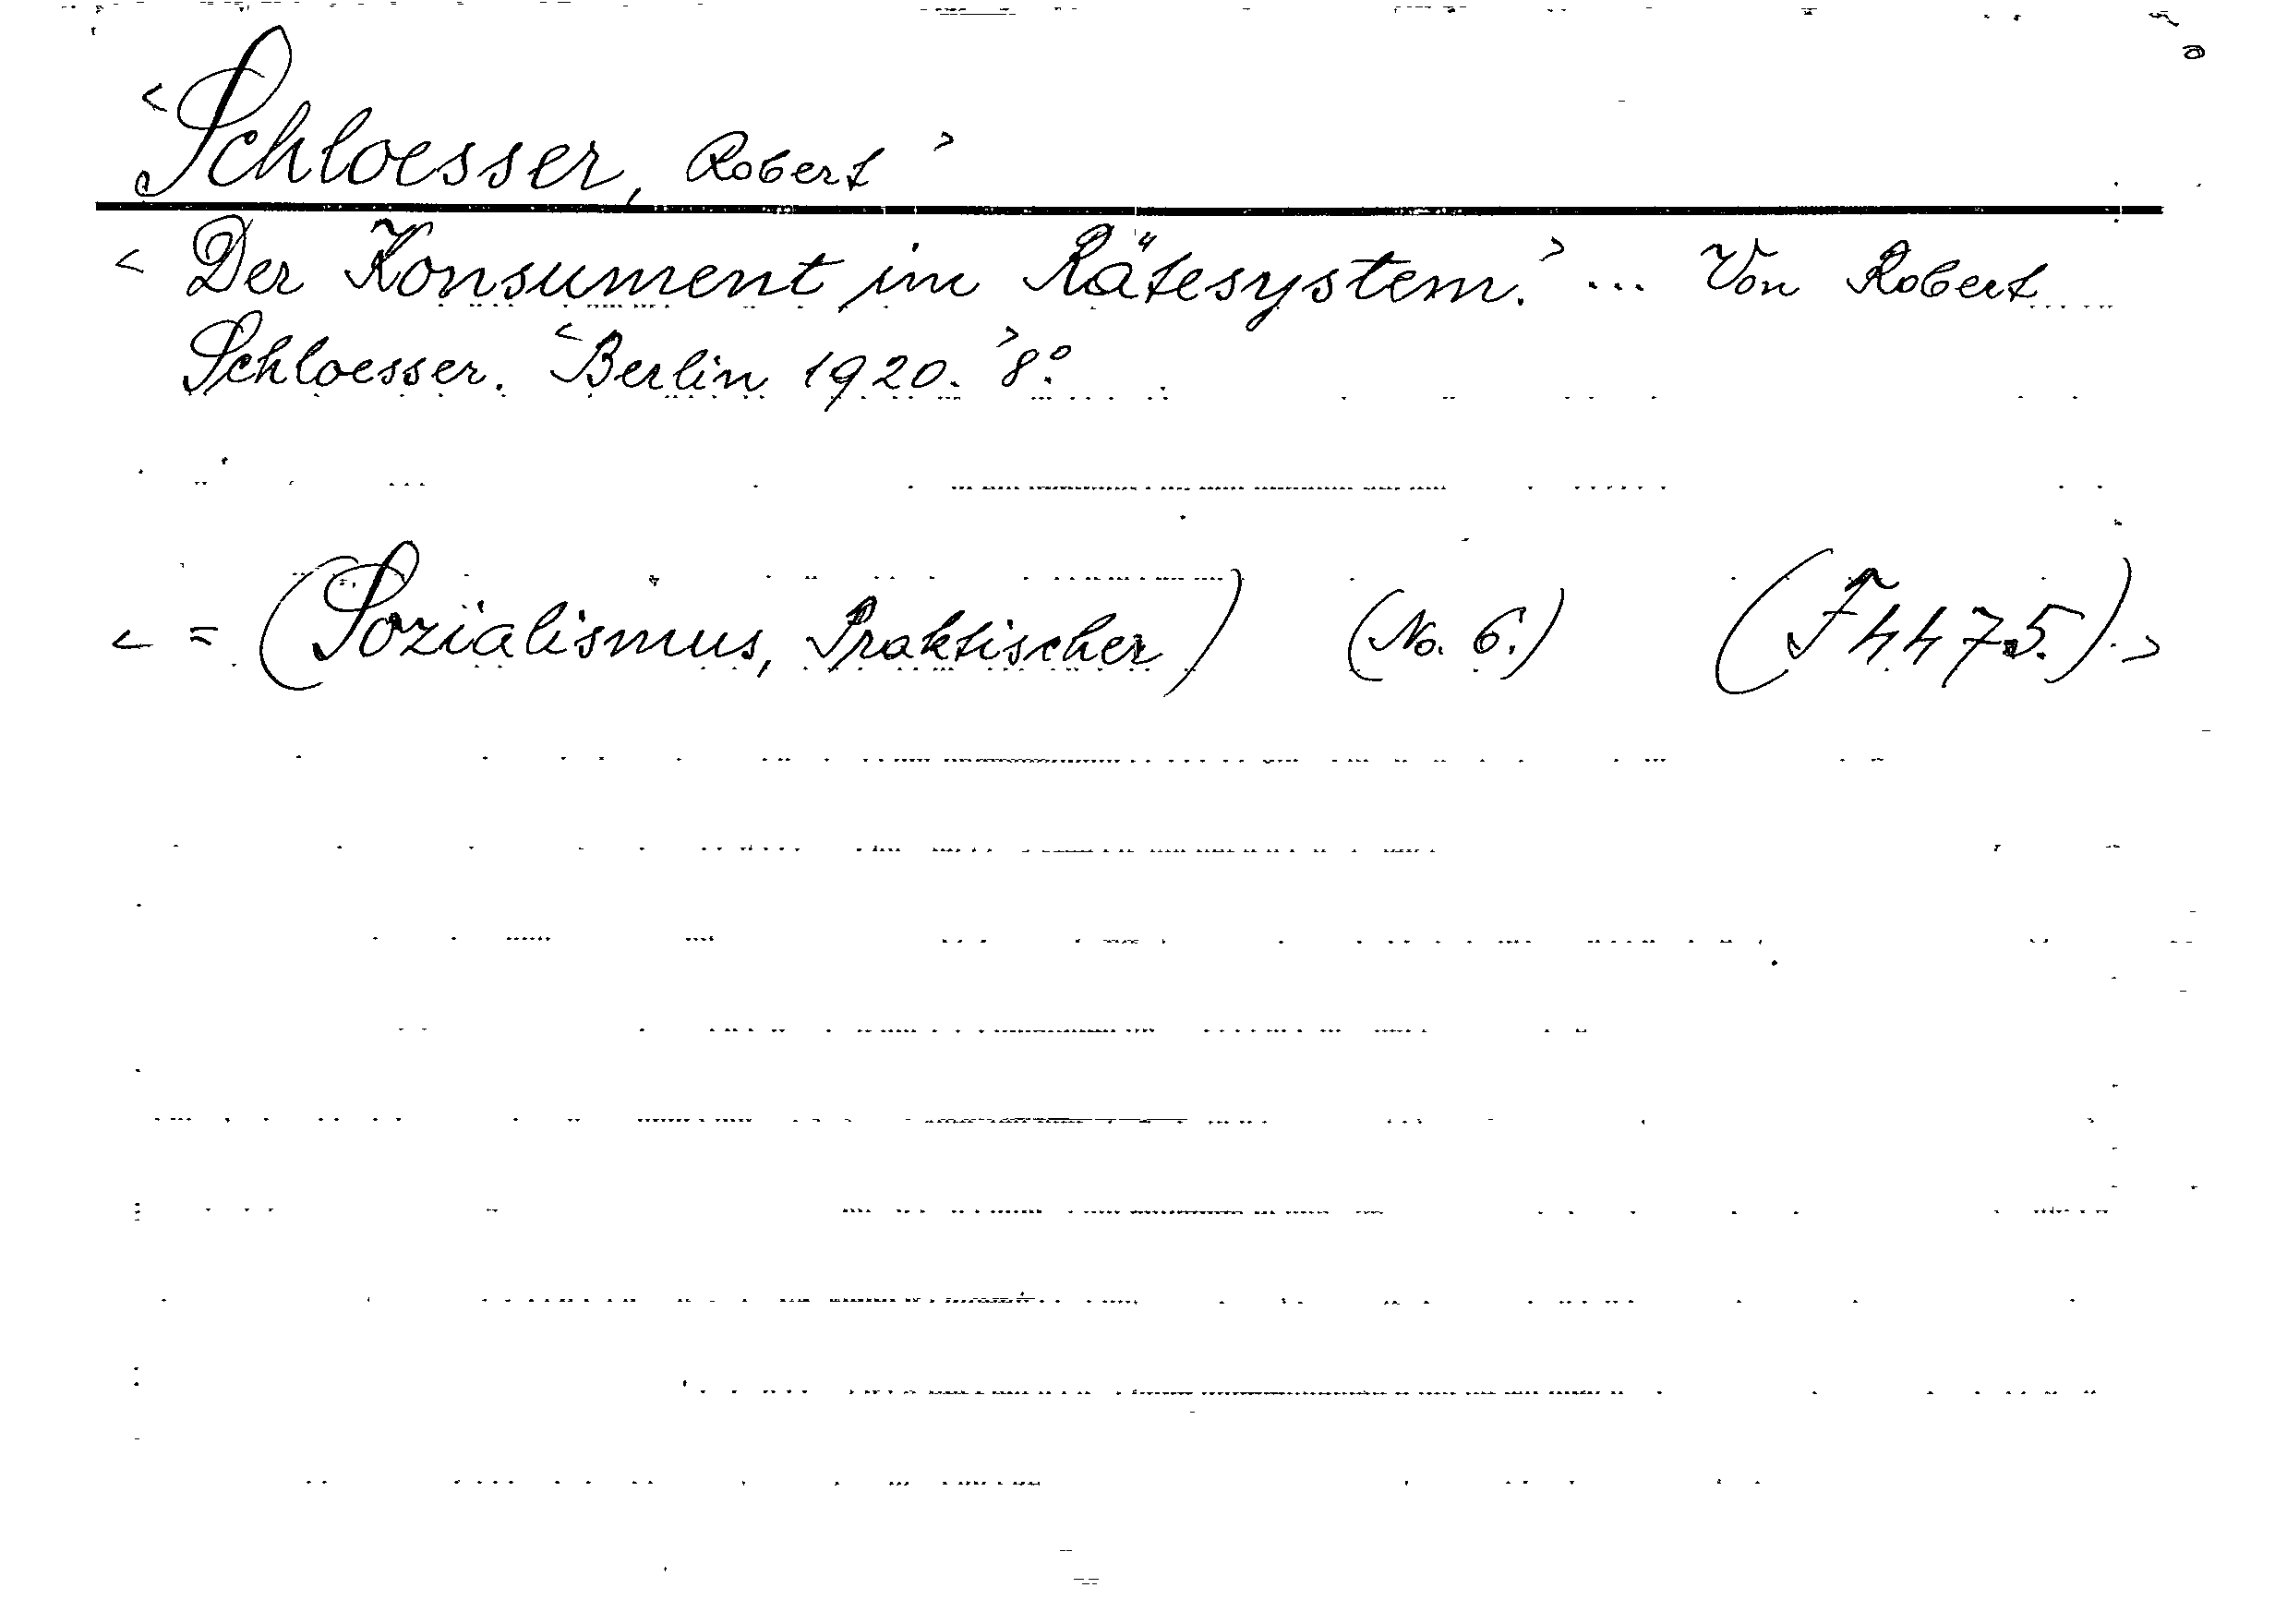 <Schloesser, Robert>
<Der Konsument im Rätesystem.> ... Von Robert
Schloesser. <Berlin 1920.> 8°.
<= (Sozialismus, Praktischer) (No. 6.) (F 4475.)>